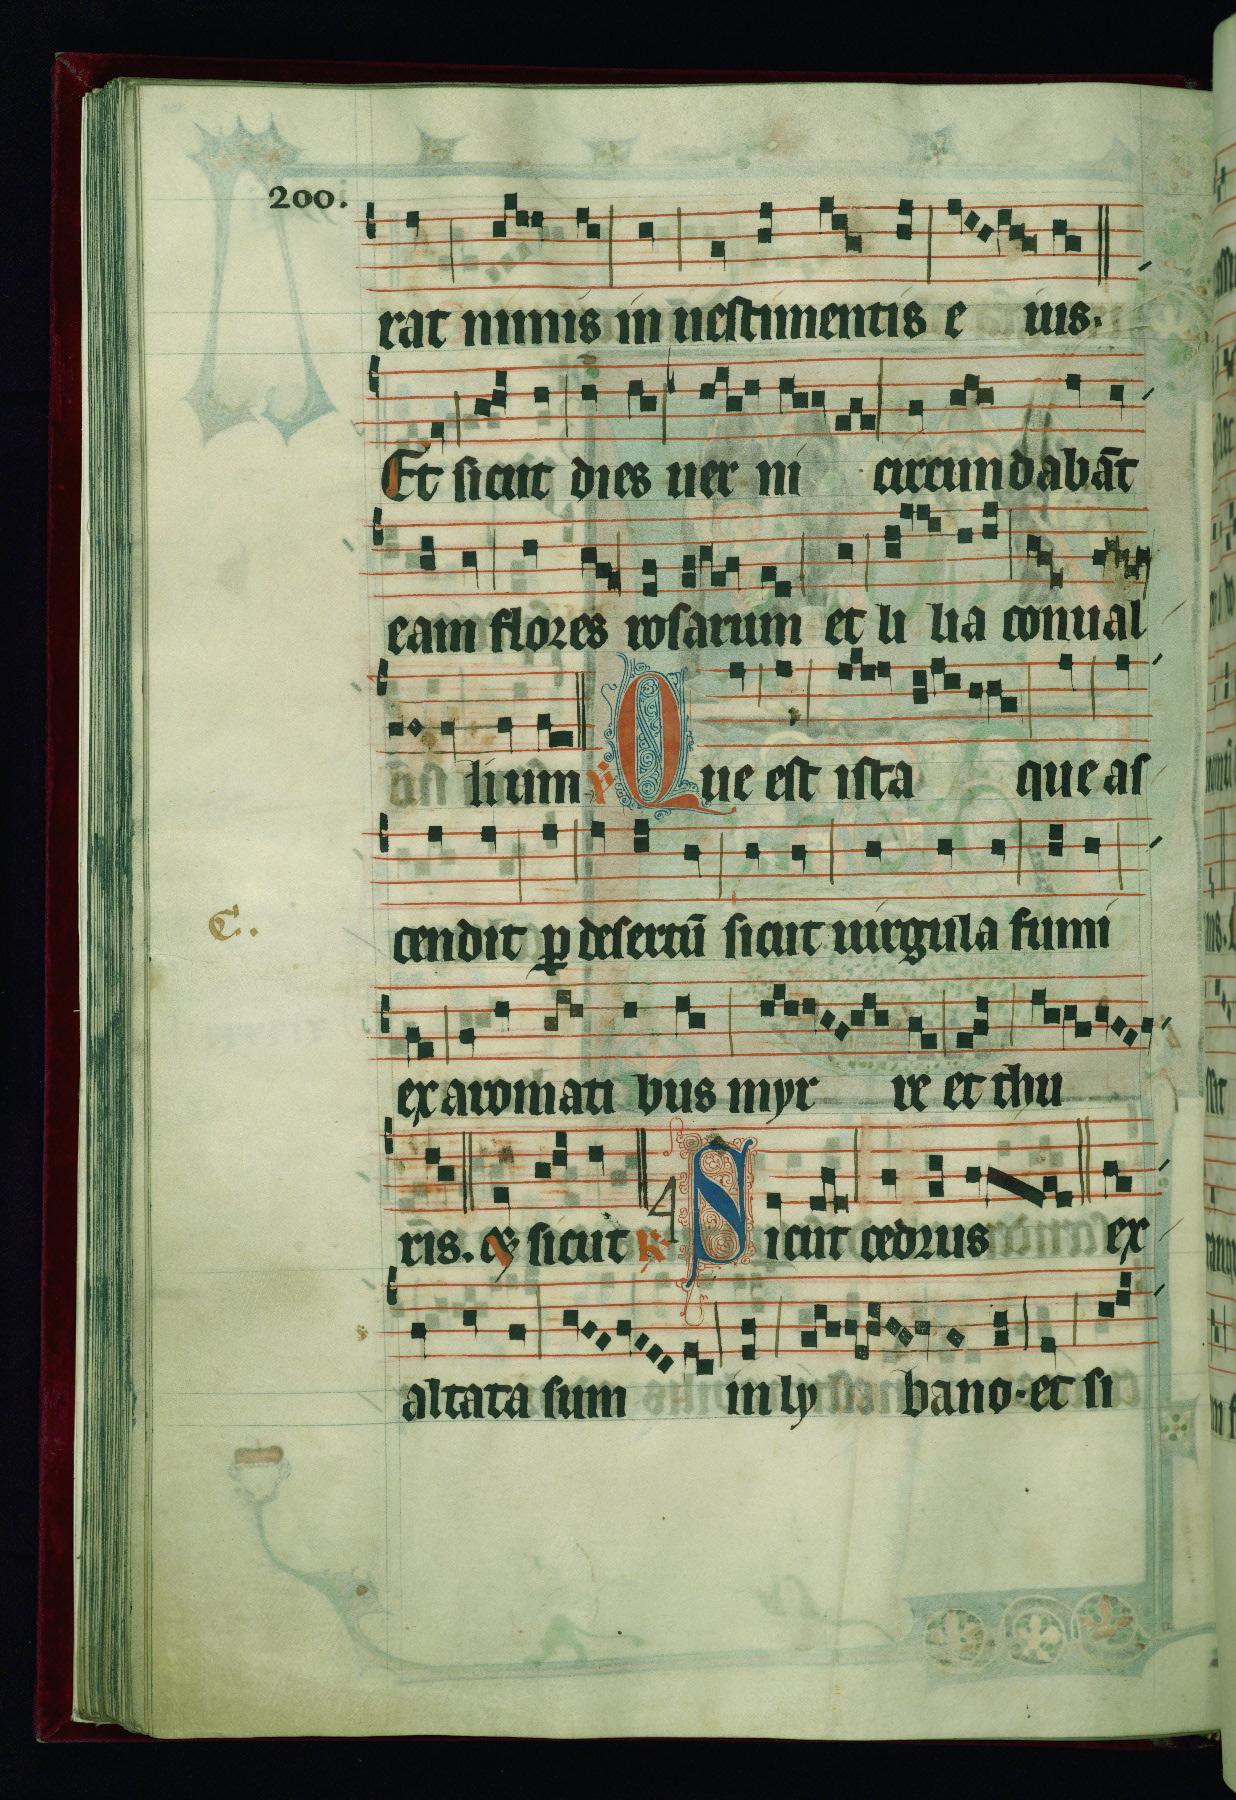 200.
rat nimis in uestimentis e ius.
Et sicut dies uer ni circundabāt
eam flores rosarum et li lia conual
lium ℣ Que est ista que as
C.
cendit ꝑ desertū sicut uirgula fumi
ex aromati bus myr re et thu
ris. sicut 4 Sicut cedrus ex
altata sum in ly bano. et si